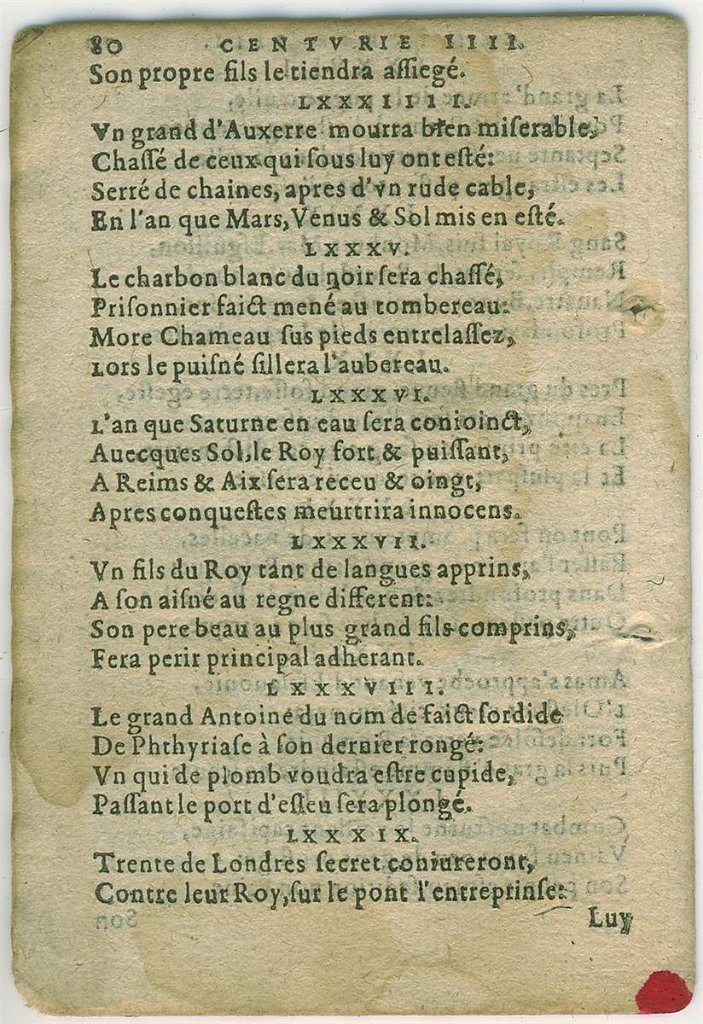 80 CENTVRIE IIII.
Son propre fils le tiendra aſſiegé.
LXXXIIII.
Vn grand d'Auxerre mourra bien miſerable,
Chaſſé de ceux qui ſous luy ont eſté:
Serré de chaines, apres d'vn rude cable,
En l'an que Mars, Venus & Sol mis en eſté.
LXXXV.
Le charbon blanc du noir ſera chaſſé,
Priſonnier faict mené au tombereau:
More Chameau ſus pieds entrelaſſez,
Lors le puiſné ſillera l'aubereau.
LXXXVI.
L'an que Saturne en eau ſera conioinct,
Auecques Sol, le Roy fort & puiſſant,
A Reims & Aix ſera receu & oingt,
Apres conqueſtes meurtrira innocens.
LXXXVII.
Vn fils du Roy tant de langues apprins,
A ſon aiſné au regne different:
Son pere beau au plus grand fils comprins,
Fera perir principal adherant.
LXXXVIII.
Le grand Antoine du nom de faict ſordide
De Phthyriaſe à ſon dernier rongé:
Vn qui de plomb voudra eſtre cupide,
Paſſant le port d'eſleu ſera plongé.
LXXXIX.
Trente de Londres ſecret coniureront,
Contre leur Roy, ſur le pont l'entreprinſe:
Luy